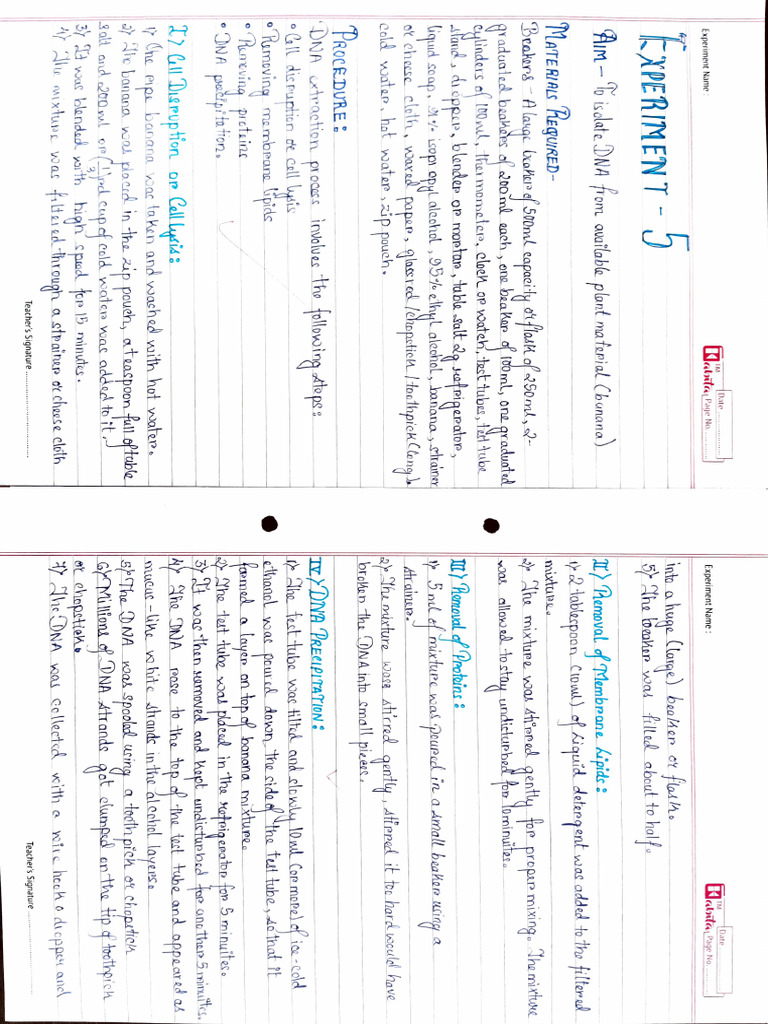 Experiment Name :
TM
Kabita
Date
Page No.
EXPERIMENT - 5
AIM - To isolate DNA from available plant material (banana)
MATERIALS REQUIRED-
Beakers - A large beaker of 500ml capacity or flask of 250ml, 2-
graduated beakers of 200ml each, one beaker of 100ml, one graduated
cylinders of 100ml, thermometer, clock or watch, test tubes, test tube
stand, dropper, blender or mortar, table salt 2g refrigerator,
liquid soup, 91% isopropyl alcohol, 95% ethyl alcohol, banana, strainer
or cheese cloth, waxed paper, glassrod/chopstick/toothpick(long).
cold water, hot water, zip pouch.
PROCEDURE:
DNA extraction process involves the following steps:
• Cell disruption or cell lysis
• Removing membrane lipids
• Removing proteins
• DNA precipitation.
I) Cell Disruption or Cell Lysis:
1) One ripe banana was taken and washed with hot water.
2) The banana was placed in the zip pouch, a teaspoon full of table
salt and 200ml or (1/3)rd cup of cold water was added to it.
3) It was blended with high speed for 15 minutes.
4) The mixture was filtered through a strainer or cheese cloth
Teacher's Signature
Experiment Name :
TM
Kabita
Date
Page No.
into a huge (large) beaker or flask.
5) The beaker was filled about to half.
II) Removal of Membrane Lipids:
1) 2 tablespoon (10ml) of liquid detergent was added to the filtered
mixture.
2) The mixture was stirred gently for proper mixing. The mixture
was allowed to stay undisturbed for 10minuites.
III) Removal of Proteins:
1) 5 ml of mixture was poured in a small beaker using a
strainer.
2) The mixture wass stirred gently, stirred it too hard would have
broken the DNA into small pieces.
IV) DNA PRECIPITATION:
1) The test tube was tilted and slowly 10ml (or more) of ice-cold
ethanol was poured down, the side of the test tube, so that it
formed a layer on top of banana mixture.
2) The test tube was placed in the refrigerator for 5 minuites.
3) It was then removed and kept undisturbed for another 5 minuites.
4) The DNA rose to the top of the test tube and appeared as
mucus-like white strands in the alcohol layers.
5) The DNA was spooled using a toothpick or chopstick
6) Millions of DNA strands got clumped on the tip of toothpick
or chopstick.
7) The DNA was collected with a wire hook o dropper and
Teacher's Signature